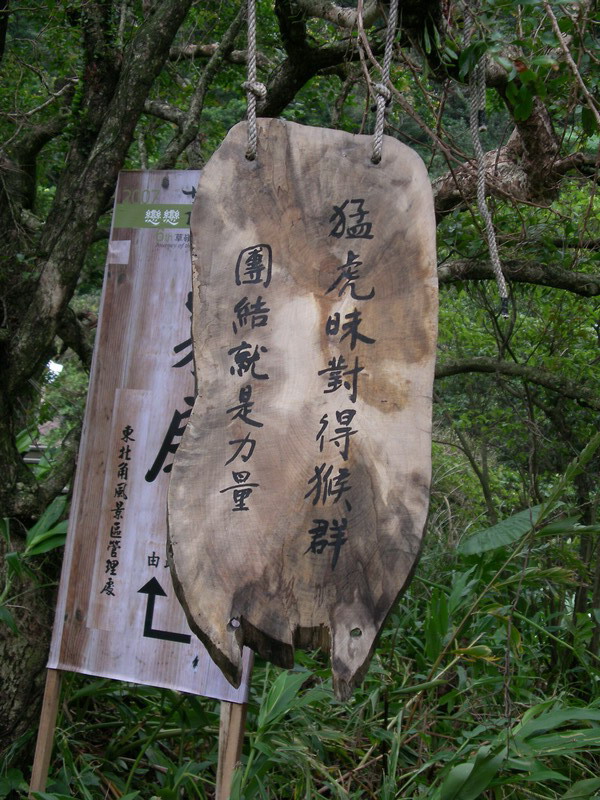 猛虎昧對得猴群
團結就是力量
戀戀
東北角風景區管理處
由